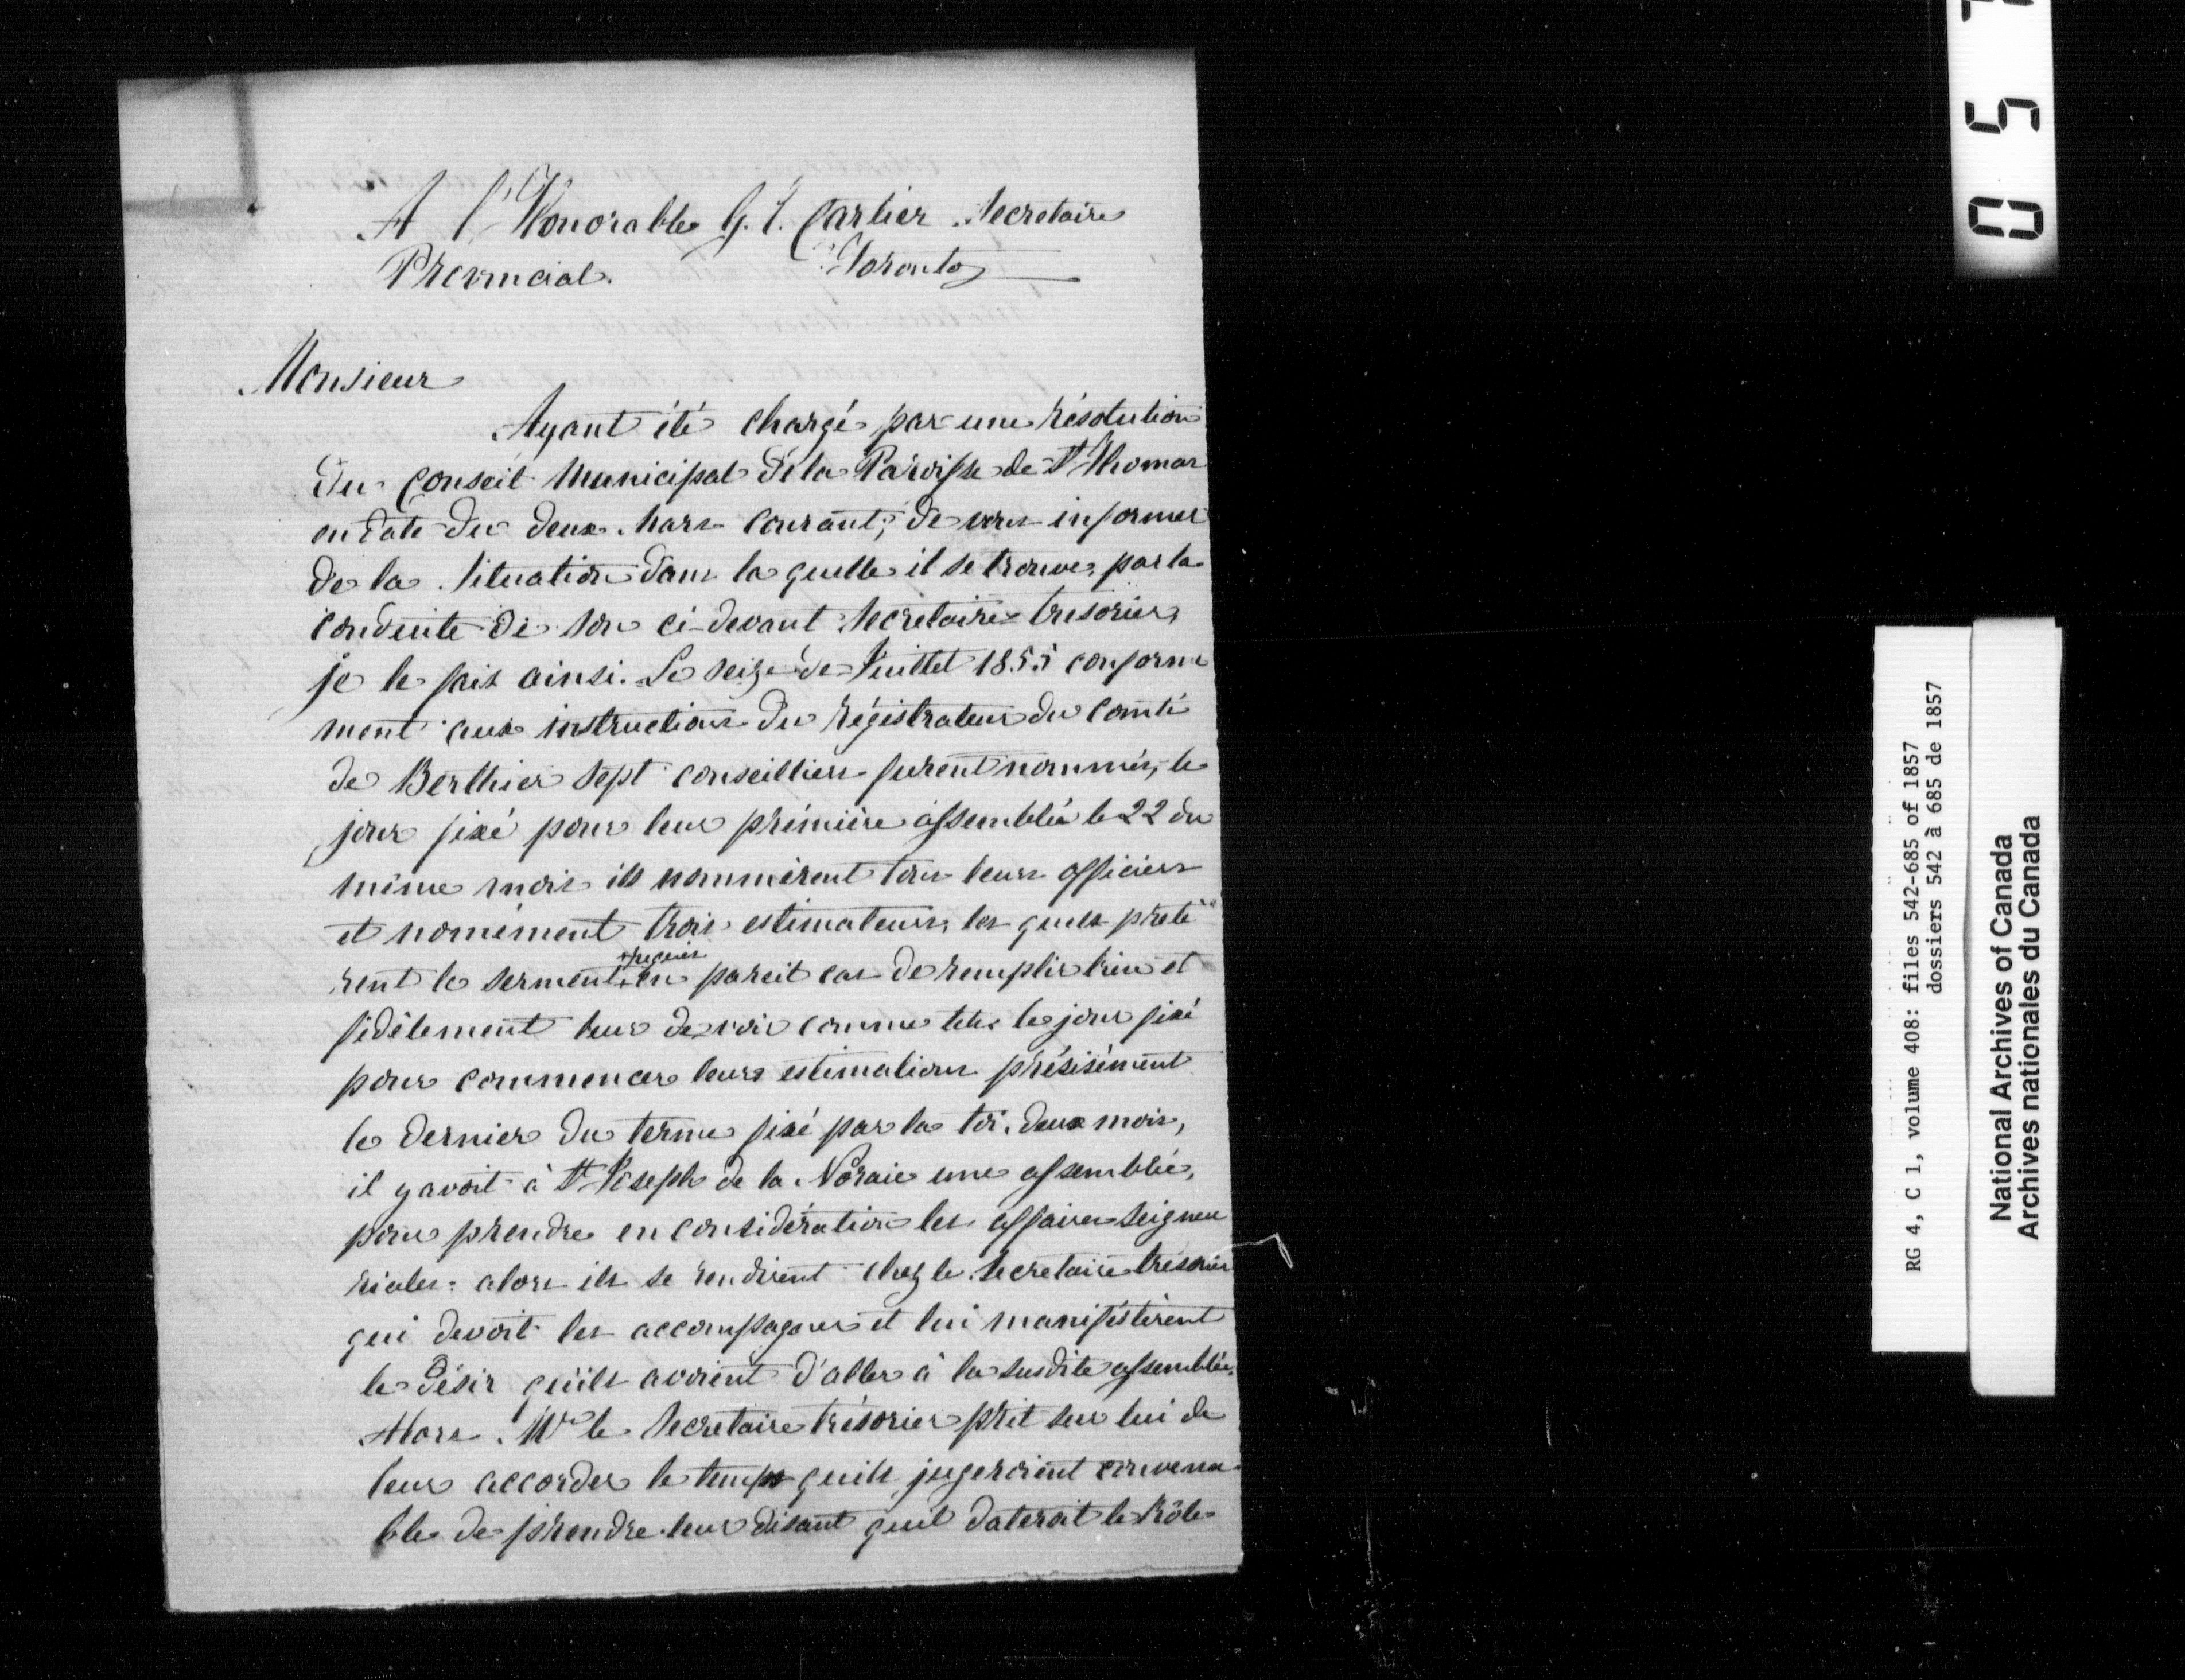 A l'Honorable G. E. Cartier Secretaire
Provincial. Toronto
Monsieur
Ayant été chargé par une résolution
du Conseil Municipal de la Paroisse de St Thomas
en date du deux Mars courant, de vous informer
de la situation dans la quelle il se trouve, par la
conduite de son ci-devant Secretaire-tresorier,
je le fais ainsi. Le seize de Juillet 1855 conformé
ment aux instructions du Régistrateur du Comté
de Berthier sept conseilliers furent nommés, le
jour fixé pour leur prémière assemblée le 22 du
même mois ils nommèrent tous leurs officiers
et nomément trois estimateurs, les quels prete
rent le serment requis en pareil cas de remplir bien et
fidèlement leur devoir comme tels. le jour fixé
pour commencer leurs estimations présisément
le dernier du terme fixé par la loi, deux mois,
il y avoit à St Joseph de la Noraie une assemblée,
pour prendre en considération les affaires seigneu
riales: alors ils se rendirent chez le Secretaire trésorier
qui devoit les accompagner et lui manifestèrent
le désir qu'ils avoient d'aller à la susdite assemblée.
Alors Mr le Secretaire trésorier prit sur lui de
leur accorder le temps quils jugeroient convena
ble de prendre leur disant quil dateroit le Rôle
0 5
RG 4, C 1, volume 408: files 542-685 of 1857
dossiers 542 à 685 de 1857
National Archives of Canada
Archives nationales du Canada